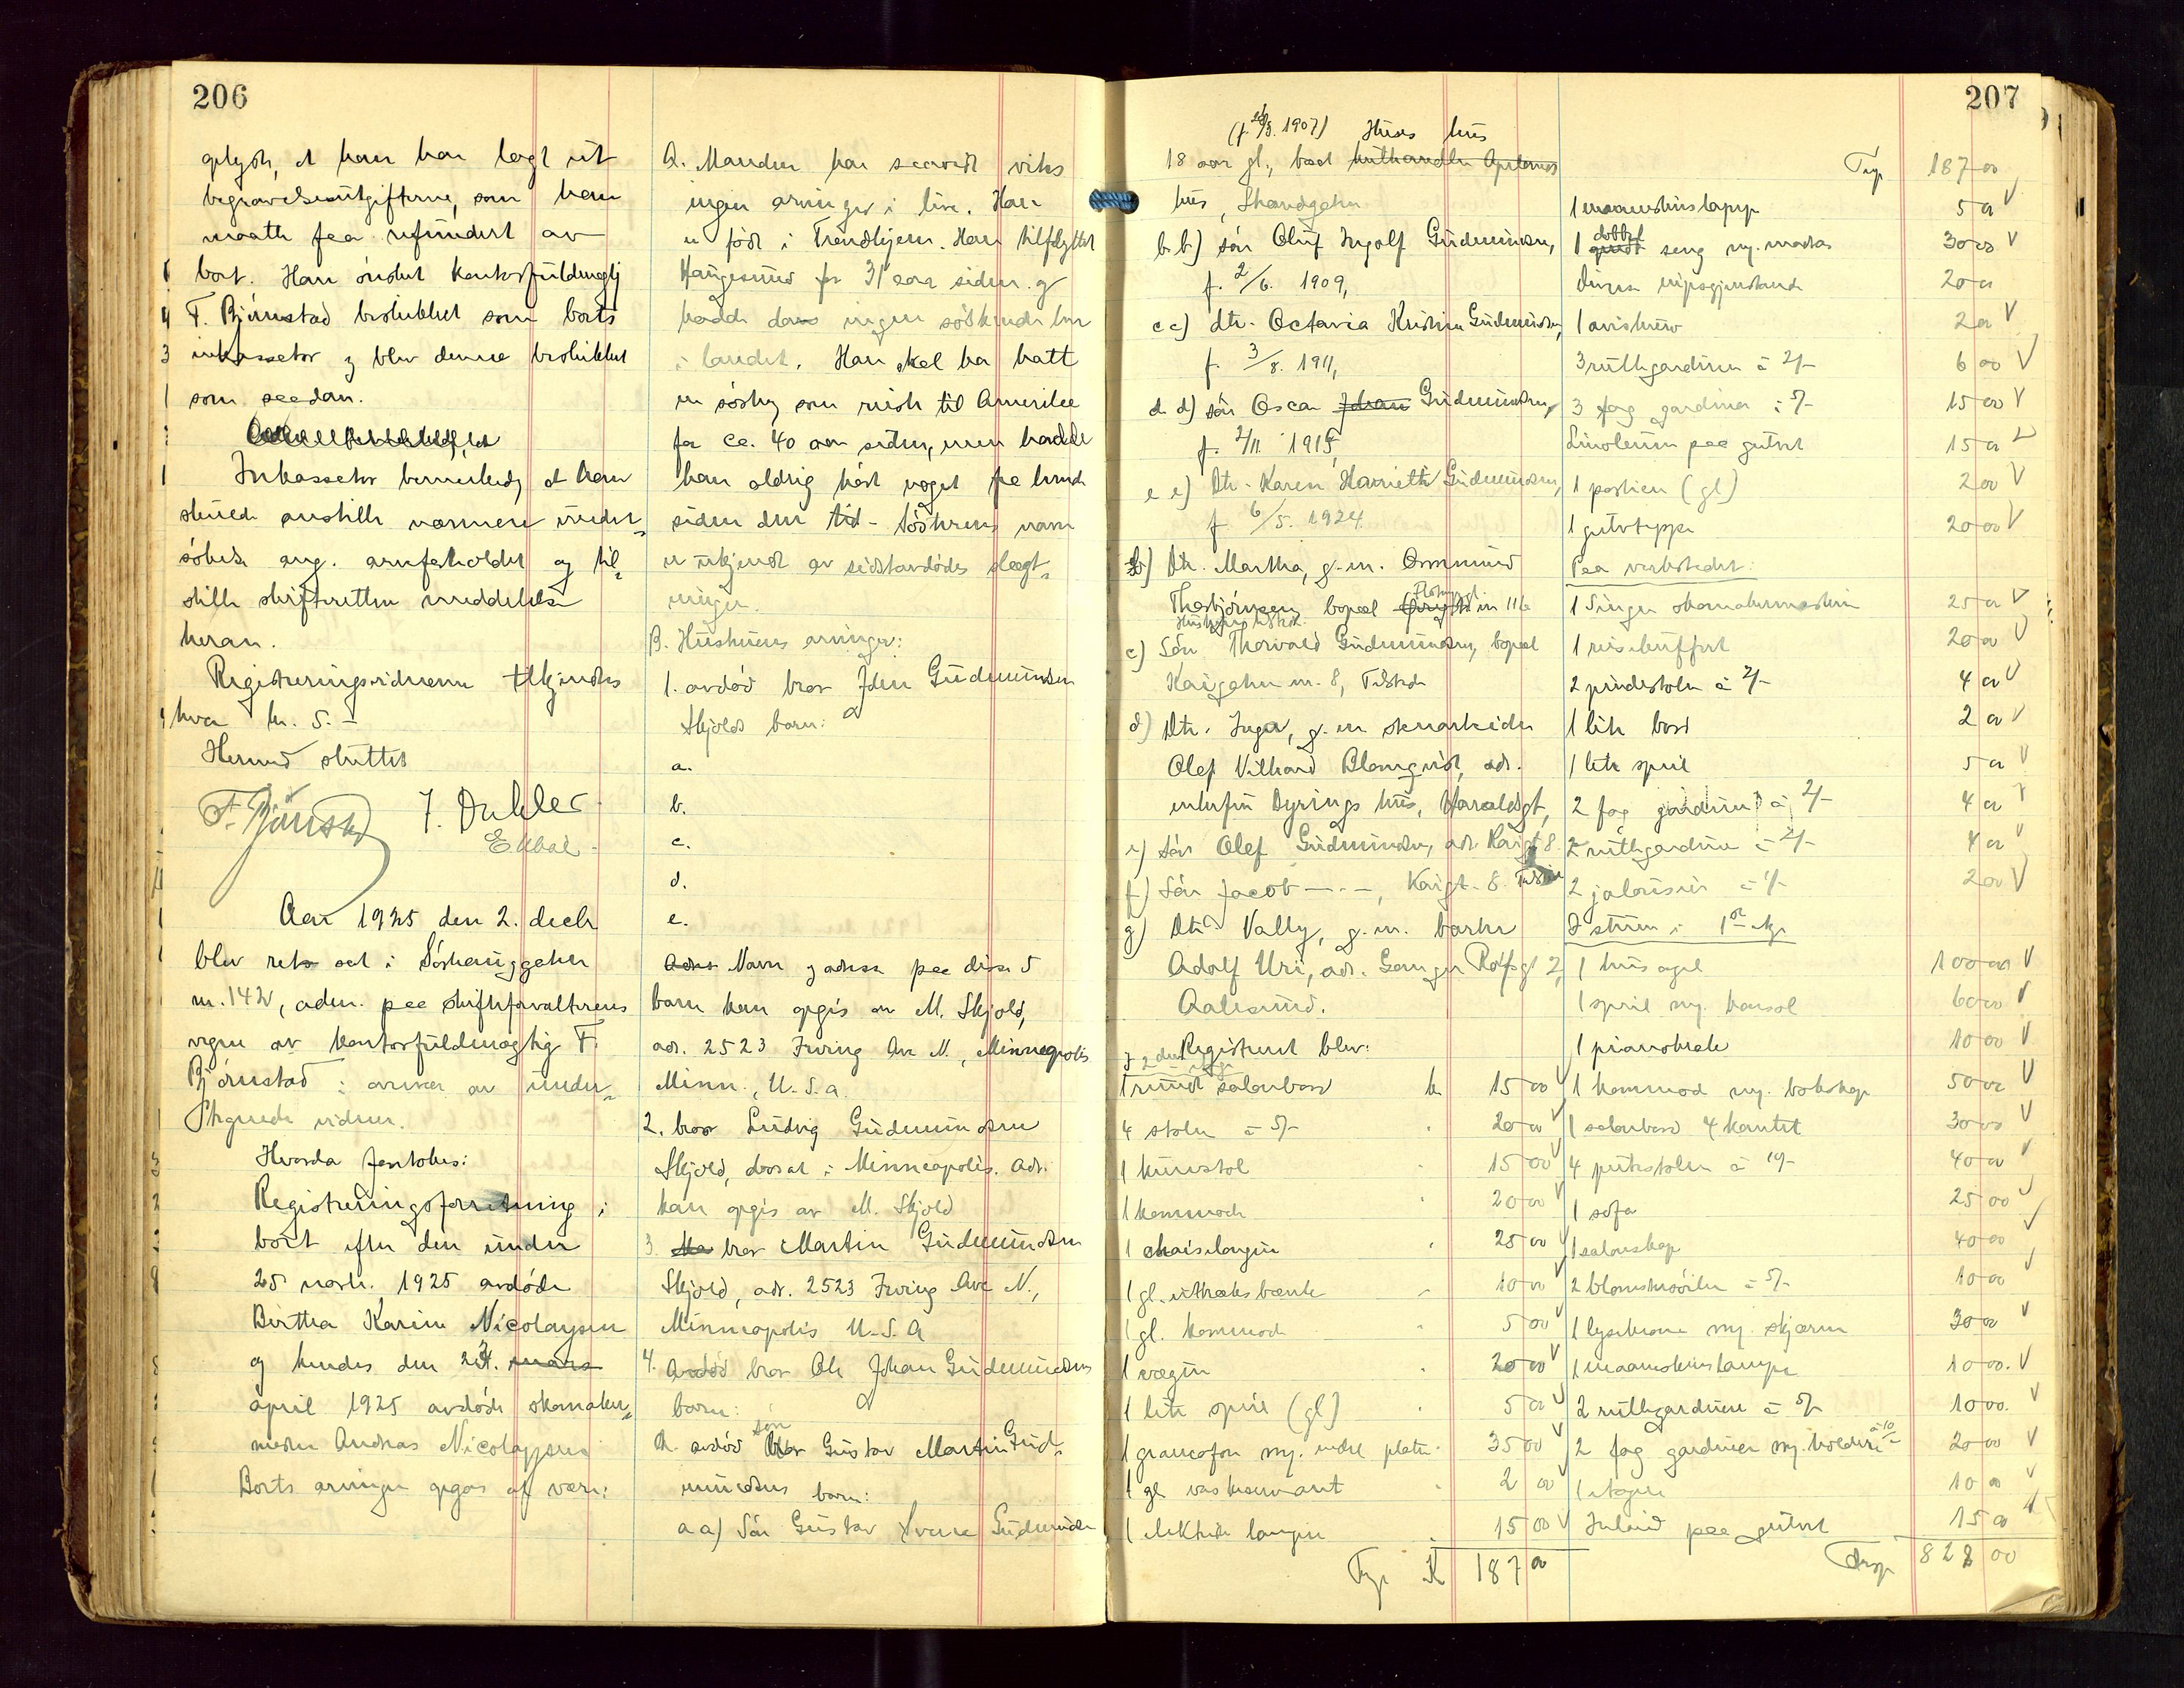 206
oplyste, at han har lagt ut
begravelsesutgifterne, som han
maatte faa refundert av
bort. Han ønsket kontorfuldmegtig
F. Bjørnstad beskikket som boets
inkassator og blev denne beskikket
som saadan.
Inkassator bemerket, at han
skulde anstille nærmere under-
søkelse ang. arveforholdet og til-
stille skifteretten meddelelse
heran.
Registreringsvidnerne tilkjendtes
hver kr. 5.-
Hermed sluttet
F. Bjørnstad J. Dahle
Aar 1925 den 2. decbr
blev ret sat i Sørhauggaten
nr. 142, adm. paa skifteforvalterens
vegne av kontorfuldmægtig F.
Bjørnstad i overvær av under-
tegnede vidner.
Hvorda foretokes:
Registreringsforretning i
boet efter den under
25 novbr. 1925 avdøde
Berttha Karine Nicolaysen
og hendes den 24. mars
april 1925 avdøde skomaker-
mester Andreas Nicolaysen
Boets arvinger opgas at være:
A. Manden har saavidt vites
ingen arvinger i live. Han
er født i Trondhjem. Han tilflyttet
Haugesund for 31 aar siden og
hadde da ingen søskende her
i landet. Han skal ha hatt
en søster som reiste til Amerika
for ca. 40 aar siden, men hadde
han aldrig hørt noget fra hende
siden den tid - Søsterens navn
er ukjendt av sidstavdødes slegt-
ninger.
B. Hustruens arvinger:
1. avdød bror Jden Gudmundsen
Skjolds barn:
a.
b.
c.
d.
e.
Navn og adresse paa disse 5
barn kan opgis av M. Skjold,
adr. 2523 Irving Ave N., Minneapolis
Minn., U.S.A.
2. bror Ludvig Gudmundsen
Skjold, bosat i Minneapolis. Adr.
kan opgis av M. Skjold
3. bror Martin Gudmundsen
Skjold, adr. 2523 Irving Ave N.,
Minneapolis U.S.A
4. Avdød bror Ole Johan Gudmundsens
barn:
a. avdød søn Gustav Martin Gud-
mundsens barn:
aa) Søn Gustav Sverre Gudmundsen
207
(f. 1907) Huses hus
18 aar gl., boed
hus, Strandgaten
bb) søn Oluf Ingolf Gudmundsen,
f. 2/6. 1909,
cc) dtr. Octavia Kristine Gudmundsen,
f. 3/8. 1911,
dd) søn Oscar Johan Gudmundsen,
f. 2/11 1915,
ee) Dtr. Karen Harriette Gudmundsen,
f. 6/5. 1924.
b) Dtr. Martha, g.m. Ommund
Thorbjørnsen, bopæl nr 116
c) Søn Thorvald Gudmundsen, bopæl
Kaigaten nr. 8, Tilstede
d) Dtr. Inga, g.m. skomarbeider
Olaf Vilhard Blomqvist, adr.
enkefru Dyrings hus, Haraldsgt,
e) Søn Olaf Gudmundsen, adr. Kaigt 8.
f) Søn Jacob -"-, Kaigt. 8. Tilstede
g) Dtr Vally, g.m. barber
Adolf Uri, adr. Ganger Rolfsgt 2,
Aalesund.
Registrert blev:
I 2den etage
1 rundt salonbord kr. 15 00 V
4 stoler a 5/- 20 00 V
1 kurvstol 15 00 V
1 kommode 20 00 V
1 chaiselongue 25 00 V
1 gl. uttræksbænk 10 00 V
1 gl. kommode 5 00 V
1 vægur 20 00 V
1 lite speil (gl) 5 00 V
1 gramofon m. endel plater 35 00 V
1 gl vaskeservant 2 00
1 elektrisk lampe 15 00 V
Trsp K 187 00
Trsp 187 00
1 maaneskinslampe 5 00 V
1 dobbel seng m. madras 30 00 V
Diverse nipsgjenstande 20 00
1 aviskurv 2 00 V
3 rullgardiner à 2/- 6 00 V
3 fag gardiner à 5/- 15 00 V
Linoleum paa gulvet 15 00 V
1 portiere (gl) 2 00 V
1 gulvteppe 20 00 V
Paa verkstedet:
1 Singer skomakermaskin 25 00 V
1 reisekuffert 20 00 V
2 pindestoler à 2/- 4 00 V
1 lite bord 2 00 V
1 lite speil 5 00 V
2 fag gardiner à 2/- 4 00 V
2 rullgardiner à 2/- 4 00 V
2 jalousier à 1/- 2 00 V
I stuen i 1ste etg.
1 husorgel 100 00 V
1 speil m. konsol 60 00 V
1 pianokrak 10 00 V
1 kommode m. bokskap 50 00 V
1 salonbord 4 kantet 30 00 V
4 polstrstoler à 10/- 40 00 V
1 sofa 25 00 V
1 salonskap 40 00 V
2 blomstersøiler à 5/- 10 00 V
1 lysekrone m. skjærm 30 00 V
1 maaneskinslampe 10 00. V
2 rullegardiner à 5/- 10 00. V
2 fag gardiner m. holdere à 10/- 20 00 V
1 etagere 10 00 V
Inlaid paa gulvet 15 00
Trsp 828 00